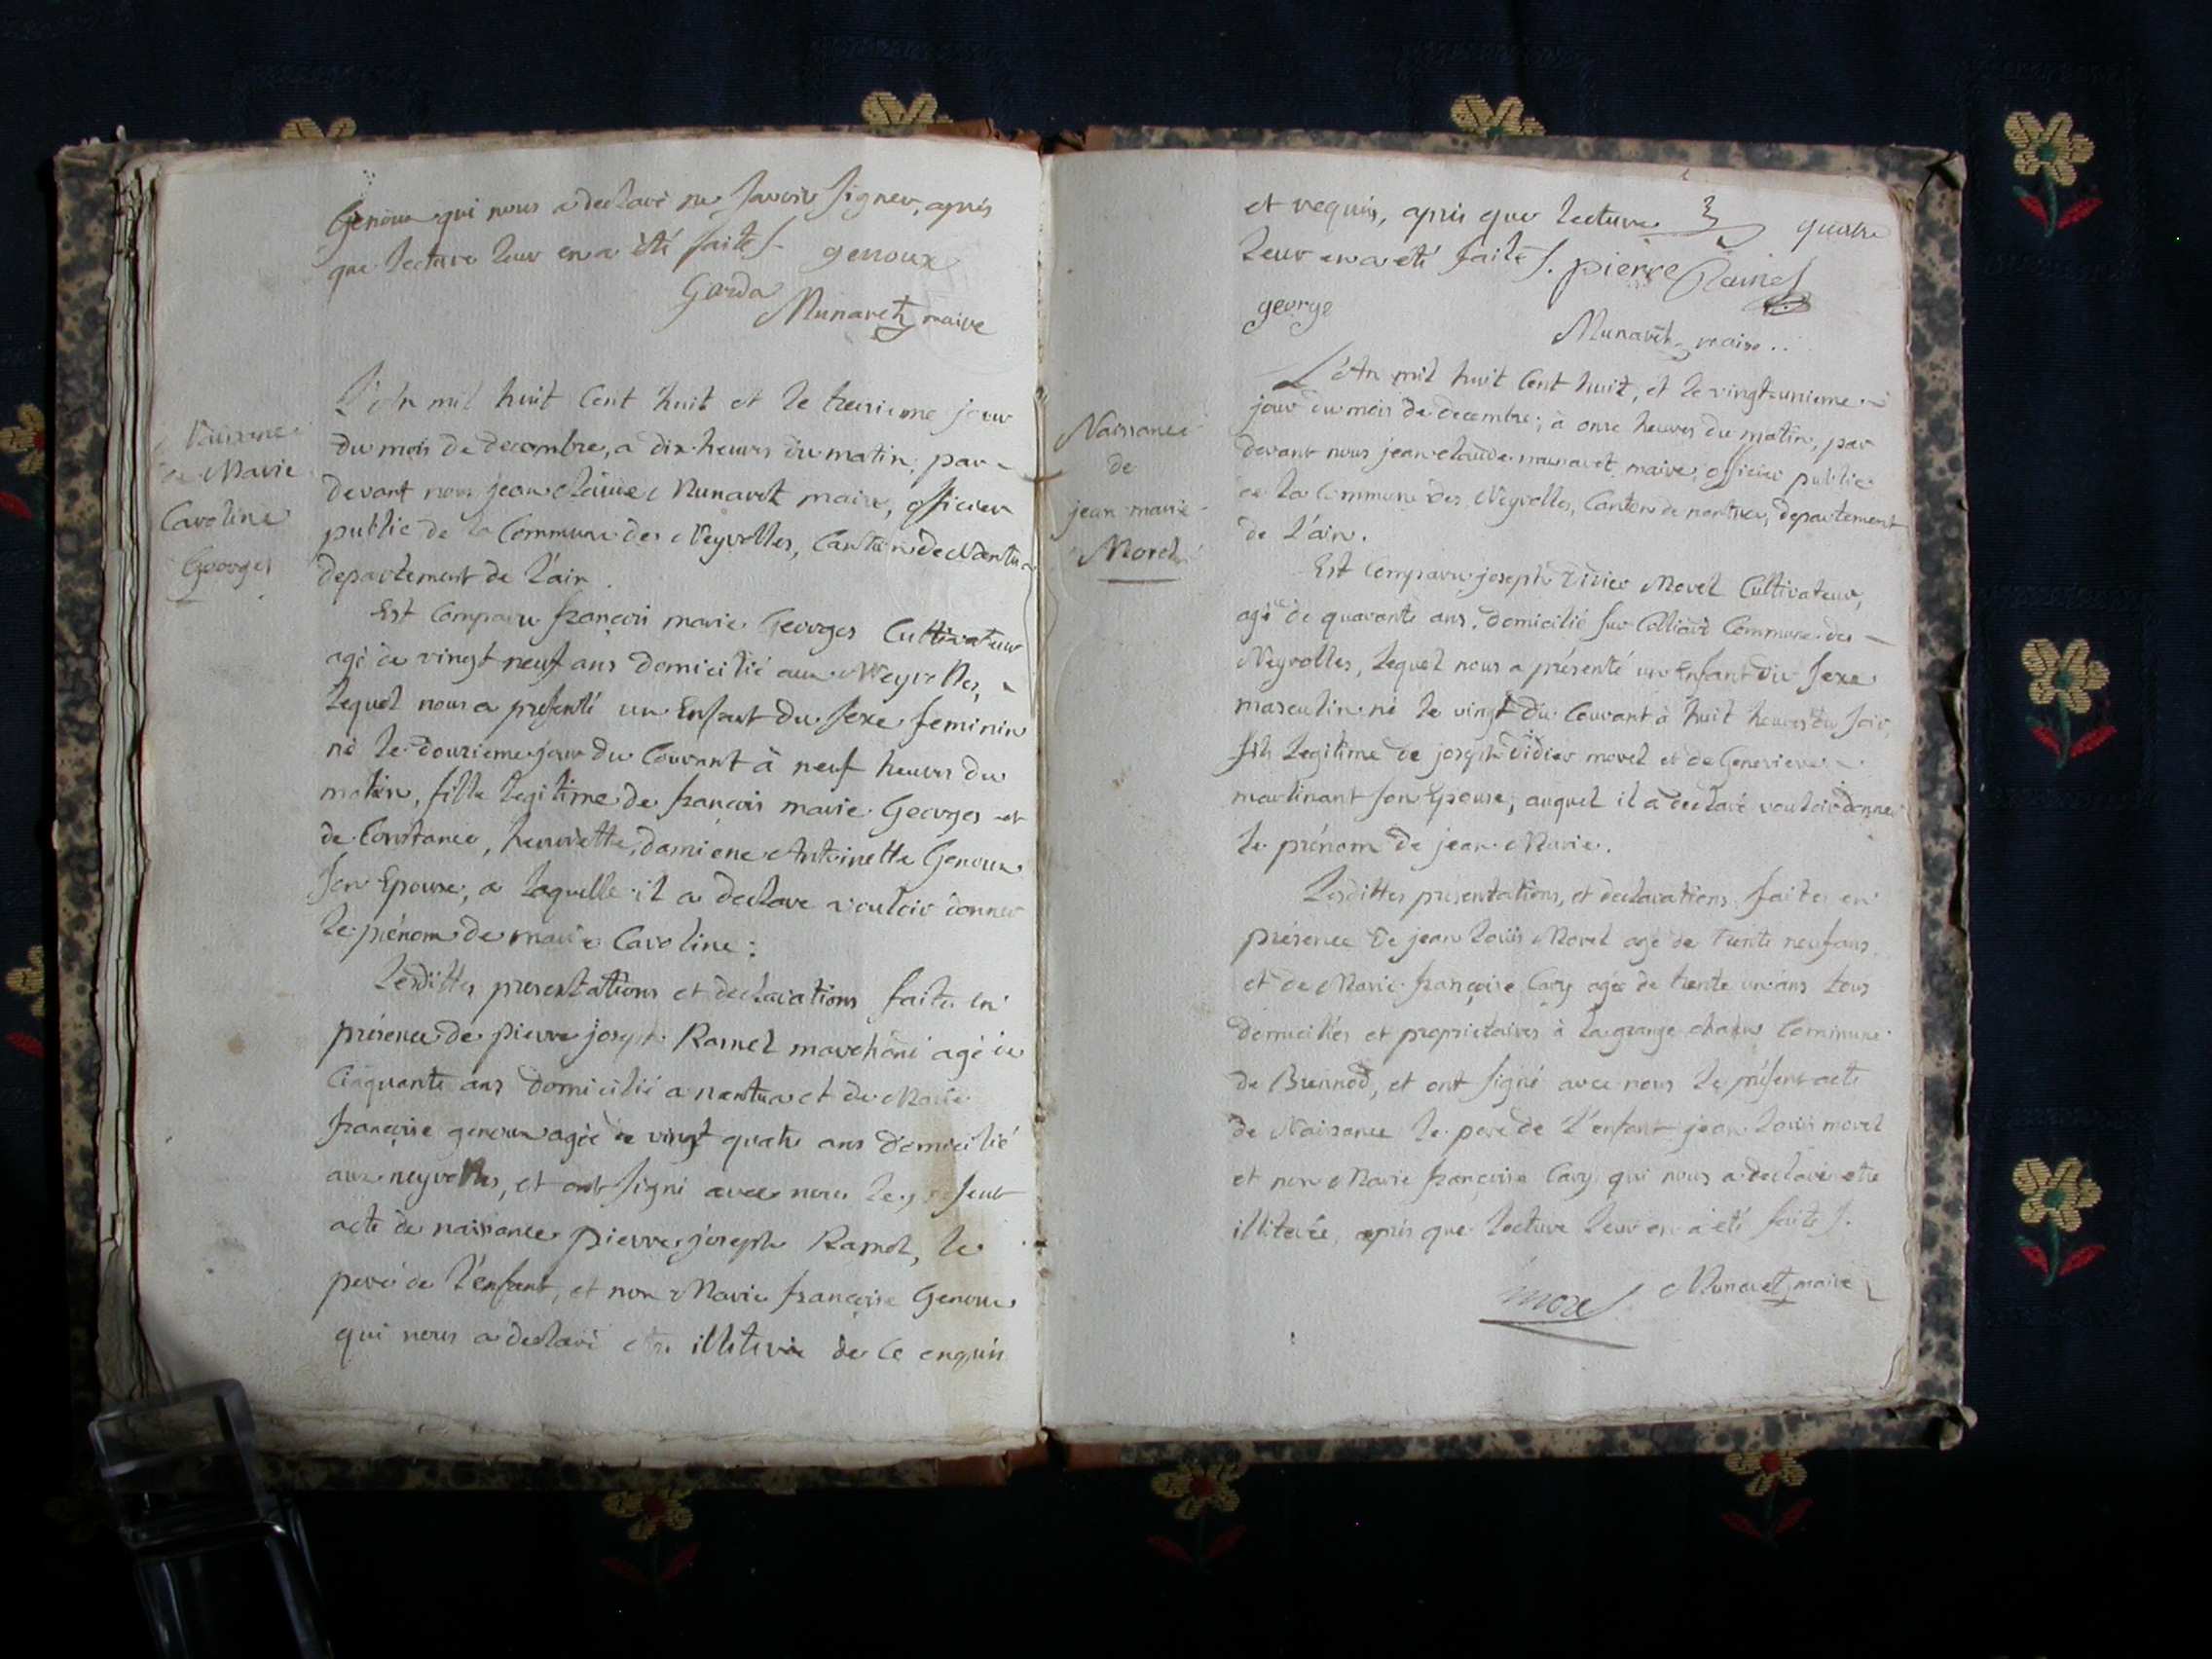 Genoux qui nous a declaré ne savoir signer, après
que lecture leur en a été faite /. genoux
Garda
Munaret maire
Naissance
de Marie
Caroline
Georges
L'An mil huit Cent huit et le treizieme jour
du mois de decembre, a dix heures du matin, par
devant nous jean claude Munaret maire, officier
public de la Commune des Neyrolles, Canton de Nantua
departement de l'ain.
Est Comparu françois marie Georges Cultivateur
agé de vingt neuf ans domicilié aux Neyrolles,
lequel nous a presenté un Enfant du sexe feminin
né le douzieme jour du Courant à neuf heures du
matin, fille legitime de françois marie Georges et
de Constance, henriette, damiene Antoinette Genoux
son Epouse, a laquelle il a declare vouloir donner
le prénom de marie Caroline :
Lesdittes presentations et declarations faites en
présence de pierre joseph Ramel marchand agé de
Cinquante ans domicilié a nantua et de Marie
françoise genoux agée de vingt quatre ans domicilié
aux neyrolles, et ont signé avec nous le present
acte de naissance pierre joseph Ramel, le
pere de l'enfant, et non Marie françoise Genoux
qui nous a declaré etre illiterée de ce enquis
et requis, après que lecture
quatre
leur en a été faite /. pierre Ramel
george
Munaret maire ..
Naissance
de
jean marie
Morel
L'An mil huit Cent huit, et le vingt unieme
jour du mois de decembre, à onze heures du matin, par
devant nous jean claude munaret maire, officier public
de la Commune des Neyrolles, Canton de nantua, departement
de l'ain.
Est Comparu joseph Didier Morel Cultivateur,
agé de quarante ans, domicilié sur Colliard Commune des
Neyrolles, lequel nous a présenté un Enfant du sexe
masculin né le vingt du Courant à huit heures du soir,
fils legitime de joseph didier morel et de Genevieve
martinant son Epouse, auquel il a declaré vouloir donner
le prénom de jean Marie.
Lesdittes présentations, et declarations faites en
présence de jean Loüis Morel agé de trente neuf ans
et de Marie françoise Cary agée de trente un ans tous
domiciliés et proprietaires à la grange Commune
de Brennod, et ont signé avec nous le présent acte
de Naissance le pere de l'enfant jean Loüis morel
et non Marie françoise Cary qui nous a declaré etre
illiterée, après que lecture leur en a été faite /.
morel
Munaret maire